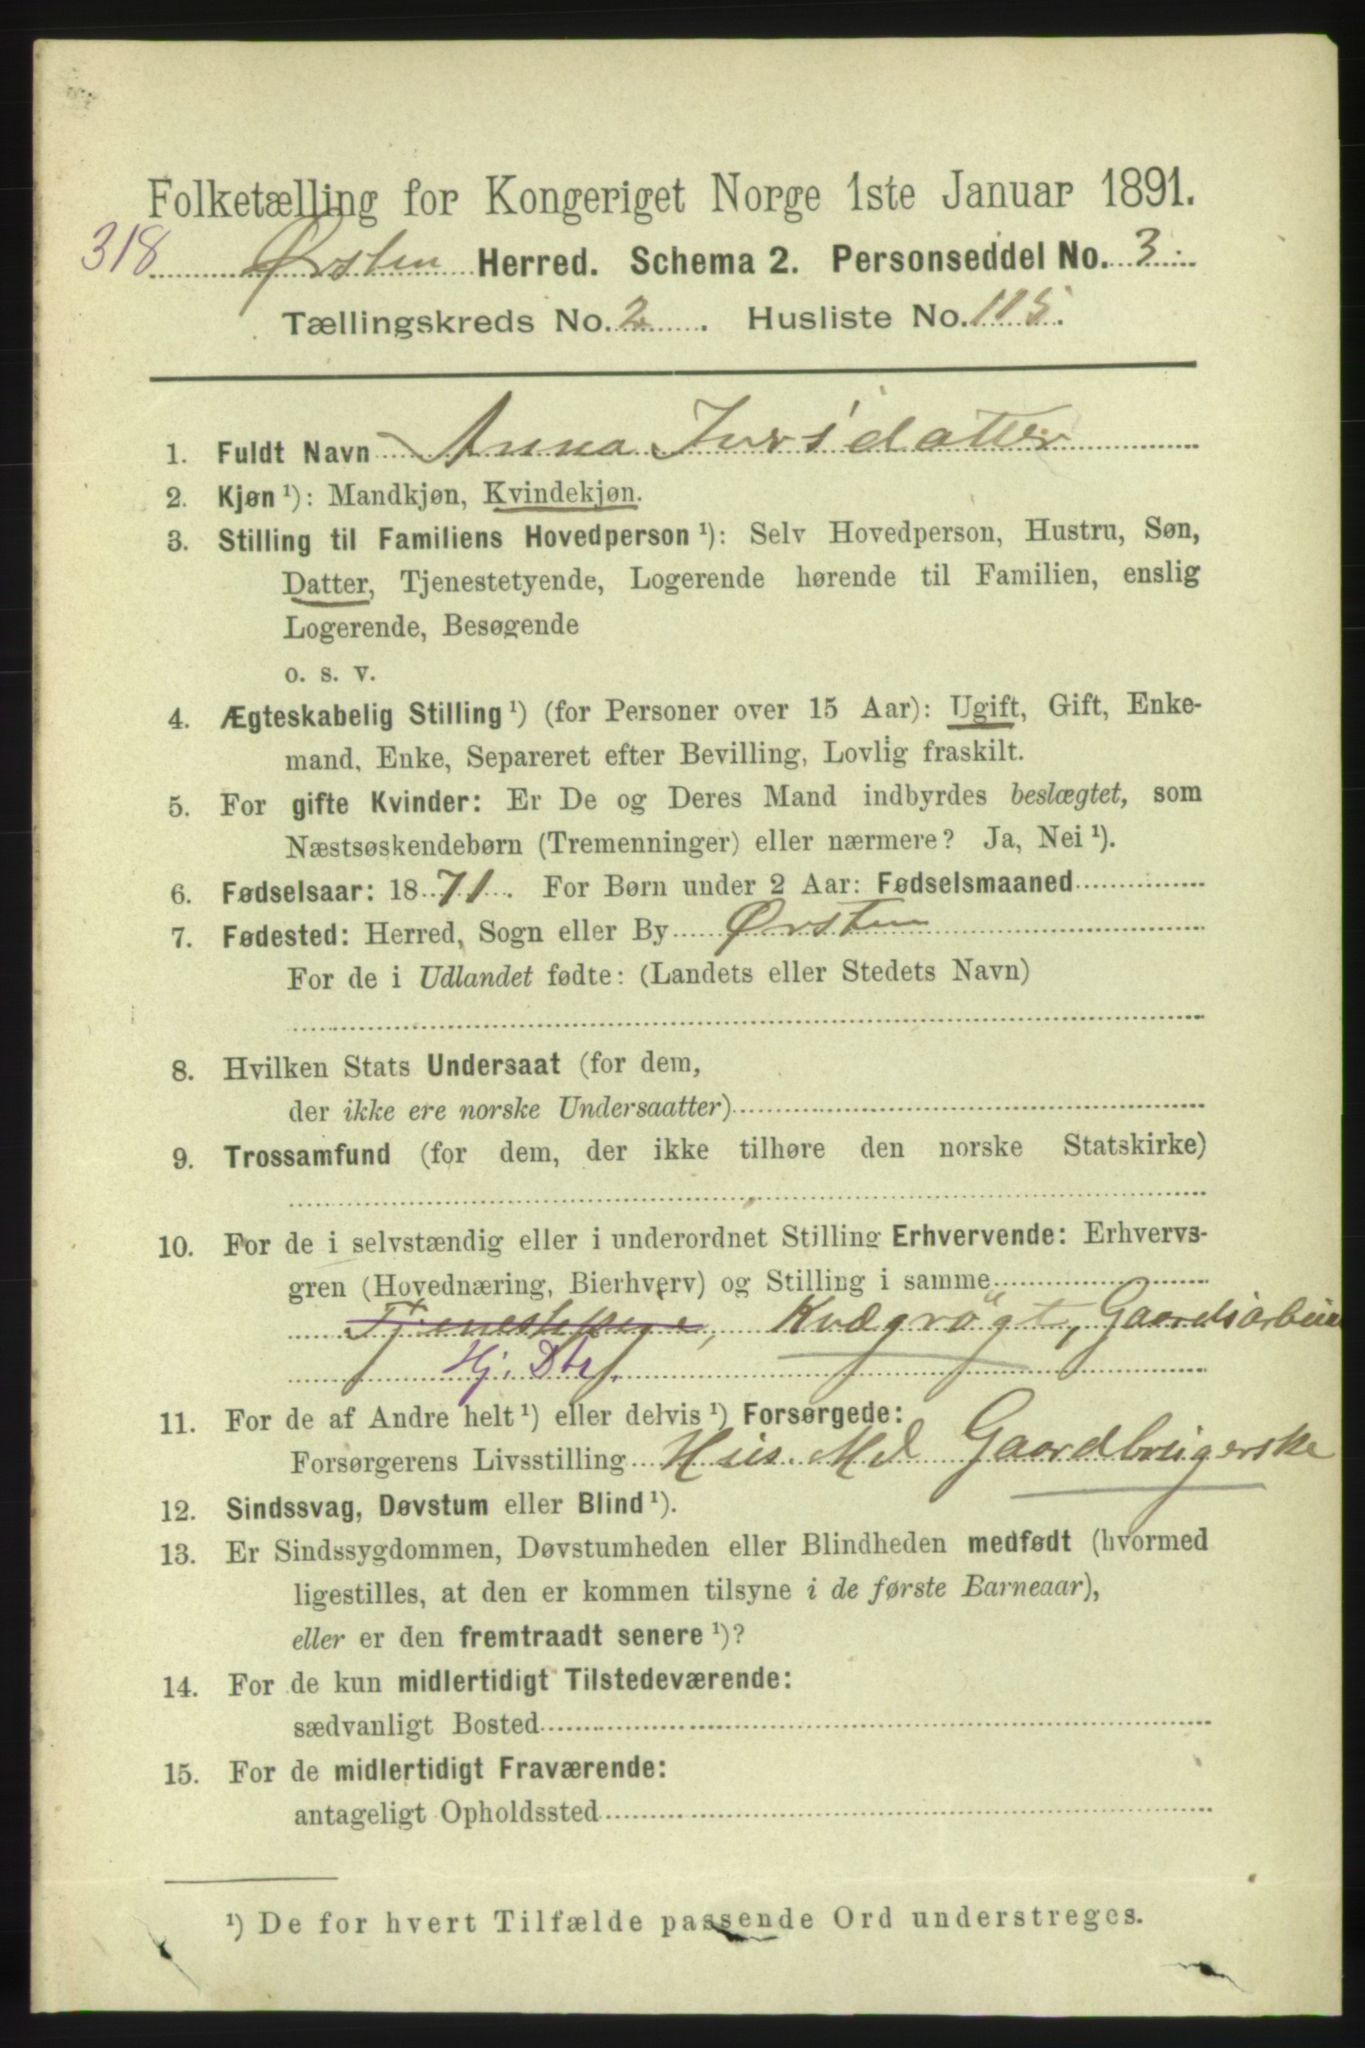 Folketælling for Kongeriget Norge 1ste Januar 1891.
318 Ørsten Herred. Schema 2. Personseddel No. 3.
Tællingskreds No. 2. Husliste No. 115.
1. Fuldt Navn Anna Iversdatter
2. Kjøn ¹): Mandkjøn, Kvindekjøn.
3. Stilling til Familiens Hovedperson ¹): Selv Hovedperson, Hustru, Søn,
Datter, Tjenestetyende, Logerende hørende til Familien, enslig
Logerende, Besøgende
o. s. v.
4. Ægteskabelig Stilling ¹) (for Personer over 15 Aar): Ugift, Gift, Enke-
mand, Enke, Separeret efter Bevilling, Lovlig fraskilt.
5. For gifte Kvinder: Er De og Deres Mand indbyrdes beslægtet, som
Næstsøskendebørn (Tremenninger) eller nærmere? Ja, Nei ¹).
6. Fødselsaar: 1871. For Børn under 2 Aar: Fødselsmaaned
7. Fødested: Herred, Sogn eller By Ørsten
For de i Udlandet fødte: (Landets eller Stedets Navn)
8. Hvilken Stats Undersaat (for dem,
der ikke ere norske Undersaatter)
9. Trossamfund (for dem, der ikke tilhøre den norske Statskirke)
10. For de i selvstændig eller i underordnet Stilling Erhvervende: Erhvervs-
gren (Hovednæring, Bierhverv) og Stilling i samme
Tjenestepige, Kvægrøgt, Gaardsarbeide
Hj. Dtr.
11. For de af Andre helt ¹) eller delvis ¹) Forsørgede:
Forsørgerens Livsstilling Gaardbrugerske
12. Sindssvag, Døvstum eller Blind ¹).
13. Er Sindssygdommen, Døvstumheden eller Blindheden medfødt (hvormed
ligestilles, at den er kommen tilsyne i de første Barneaar),
eller er den fremtraadt senere ¹)?
14. For de kun midlertidigt Tilstedeværende:
sædvanligt Bosted
15. For de midlertidigt Fraværende:
antageligt Opholdssted
¹) De for hvert Tilfælde passende Ord understreges.